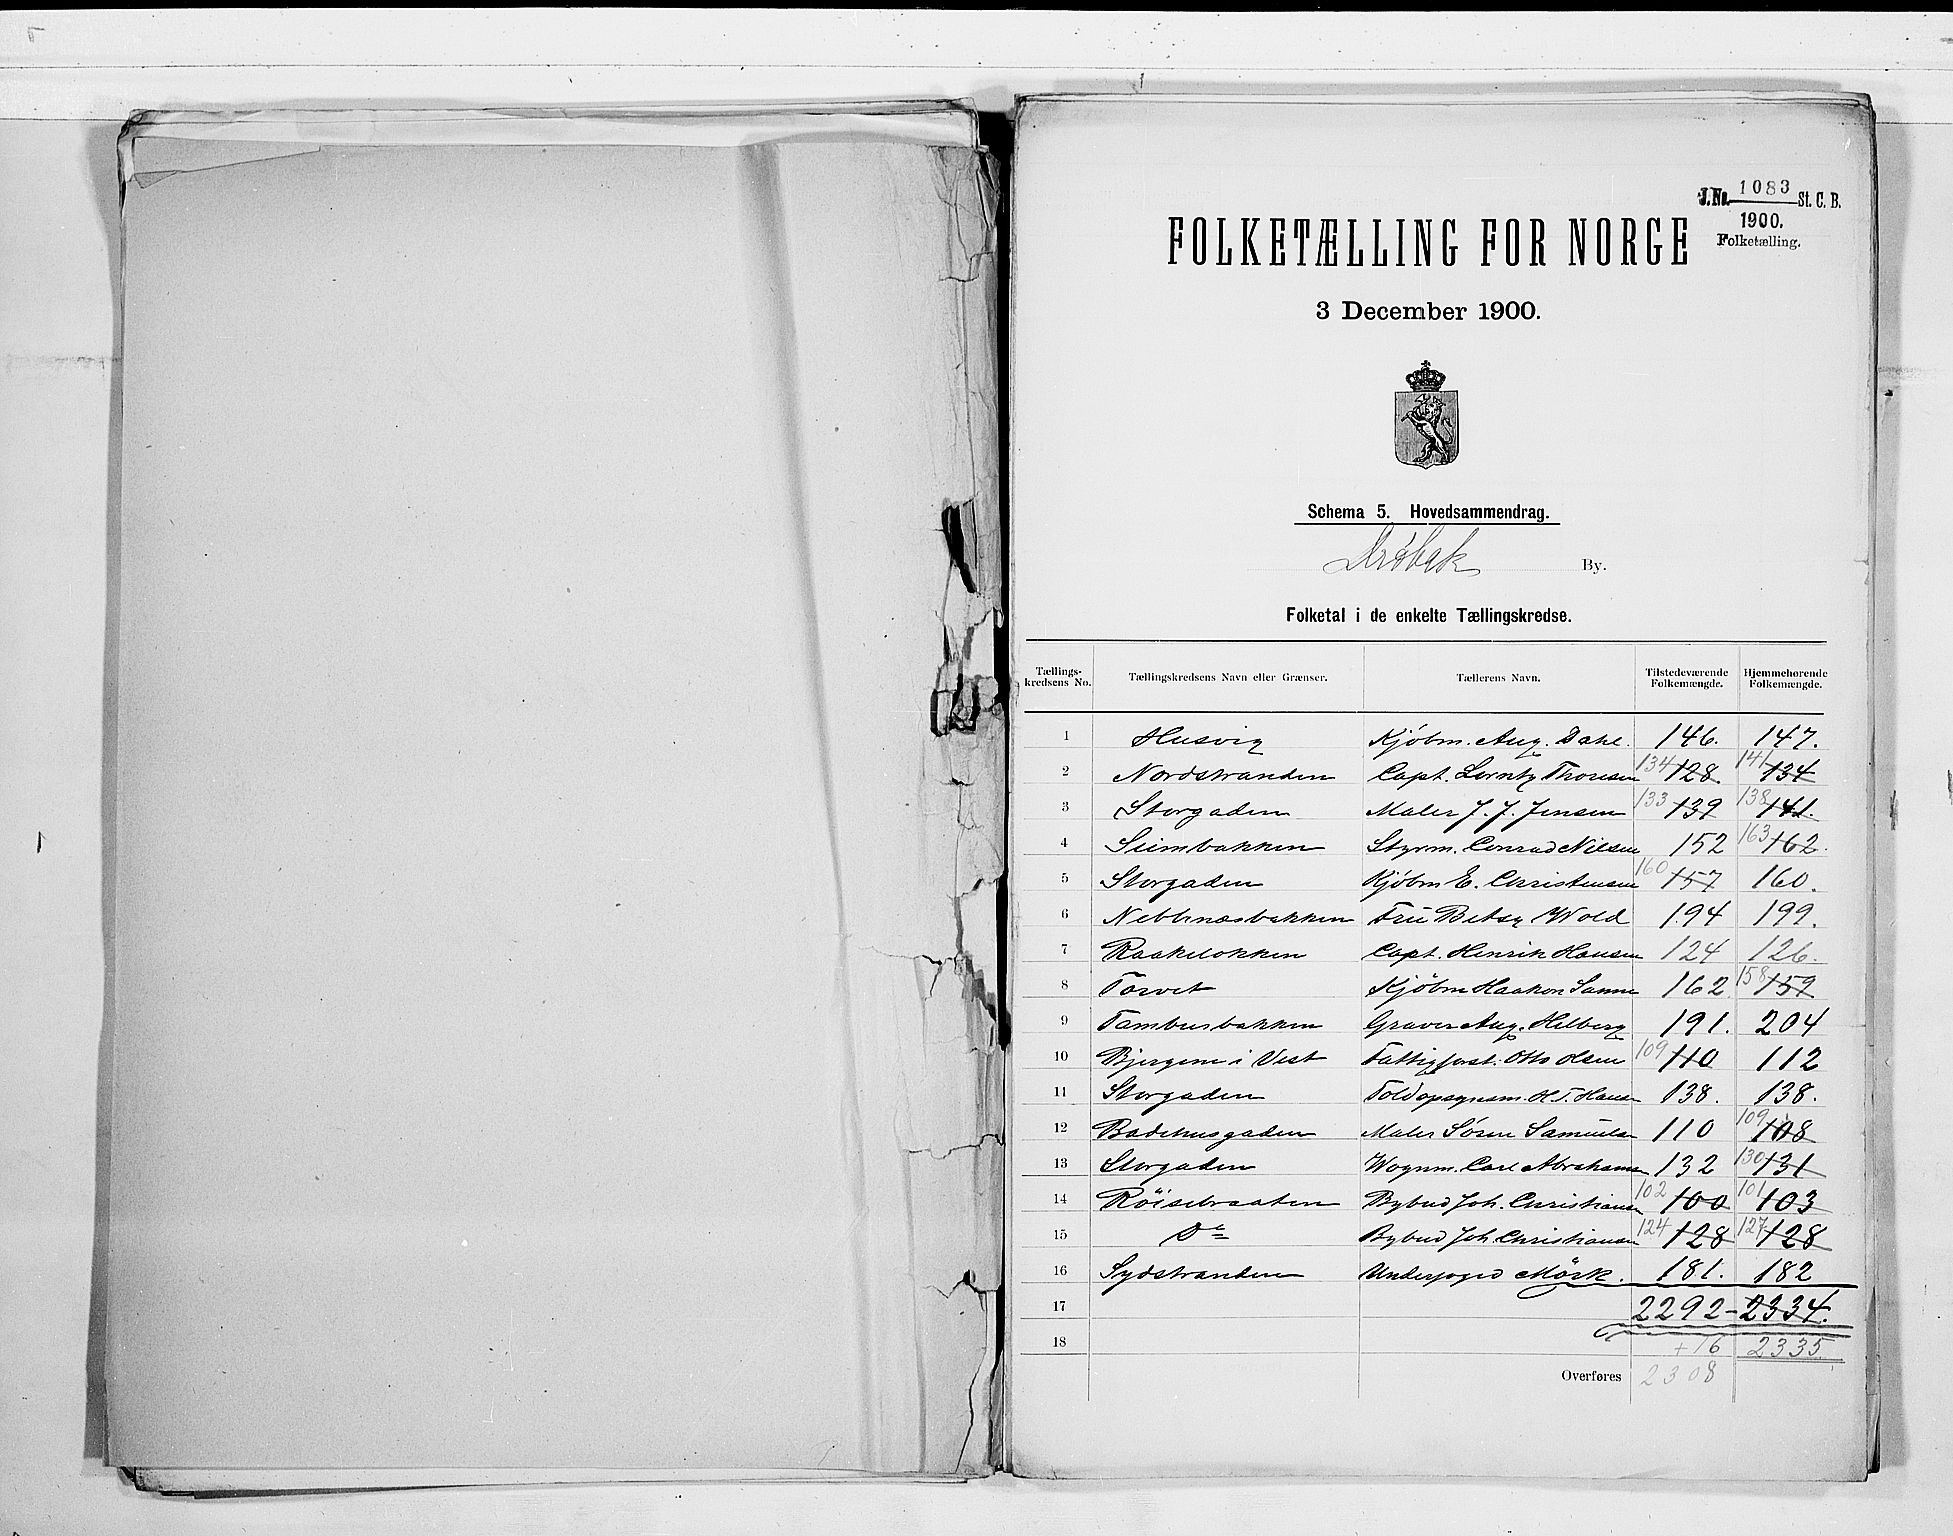 J.No. 1083 St. C. B.
1900.
Folketælling.
FOLKETÆLLING FOR NORGE
3 December 1900.
Schema 5. Hovedsammendrag.
Drøbak By.
Folketal i de enkelte Tællingskredse.
Tællingskredsens No. Tællingskredsens Navn eller Grænser. Tællerens Navn. Tilstedeværende Folkemængde. Hjemmehørende Folkemængde.
1 Husvig Kjøbm. Aug. Dahl. 146. 147.
2 Nordstranden Capt. Lorntz Thoresen 134 128. 141 134
3 Storgaden Maler J. J. Jensen 133 139 138 141.
4 Seiersbakken Styrm. Conrad Nilsen 152 163 162.
5 Storgaden Kjøbm E. Christensen 160 157 160.
6 Nebbnæsbakken Fru Betsy Wold 194 199.
7 Raakeløkken Capt. Henrik Hansen 124 126.
8 Torvet Kjøbm Haakon Sanne 162 158 159
9 Tamburbakken Graver Aug. Helberg 191. 204
10 Bjergene i Vest Fattigforst. Otto Olsen 109 110 112
11 Storgaden Toldopsynsm. H. T. Hansen 138. 138.
12 Badehusgaden Maler Søren Samuelsen 110 109 108
13 Storgaden Wognm. Carl Abrahamsen 132 130 131
14 Röisebraaten Bybud Joh. Christiansen 102 100 101 103
15 Do Bybud Joh. Christiansen 124 128 127 128
16 Sydstranden Underfoged Mörk. 181. 182
17 2292 - 2334.
18 + 16 2335
Overføres 2308